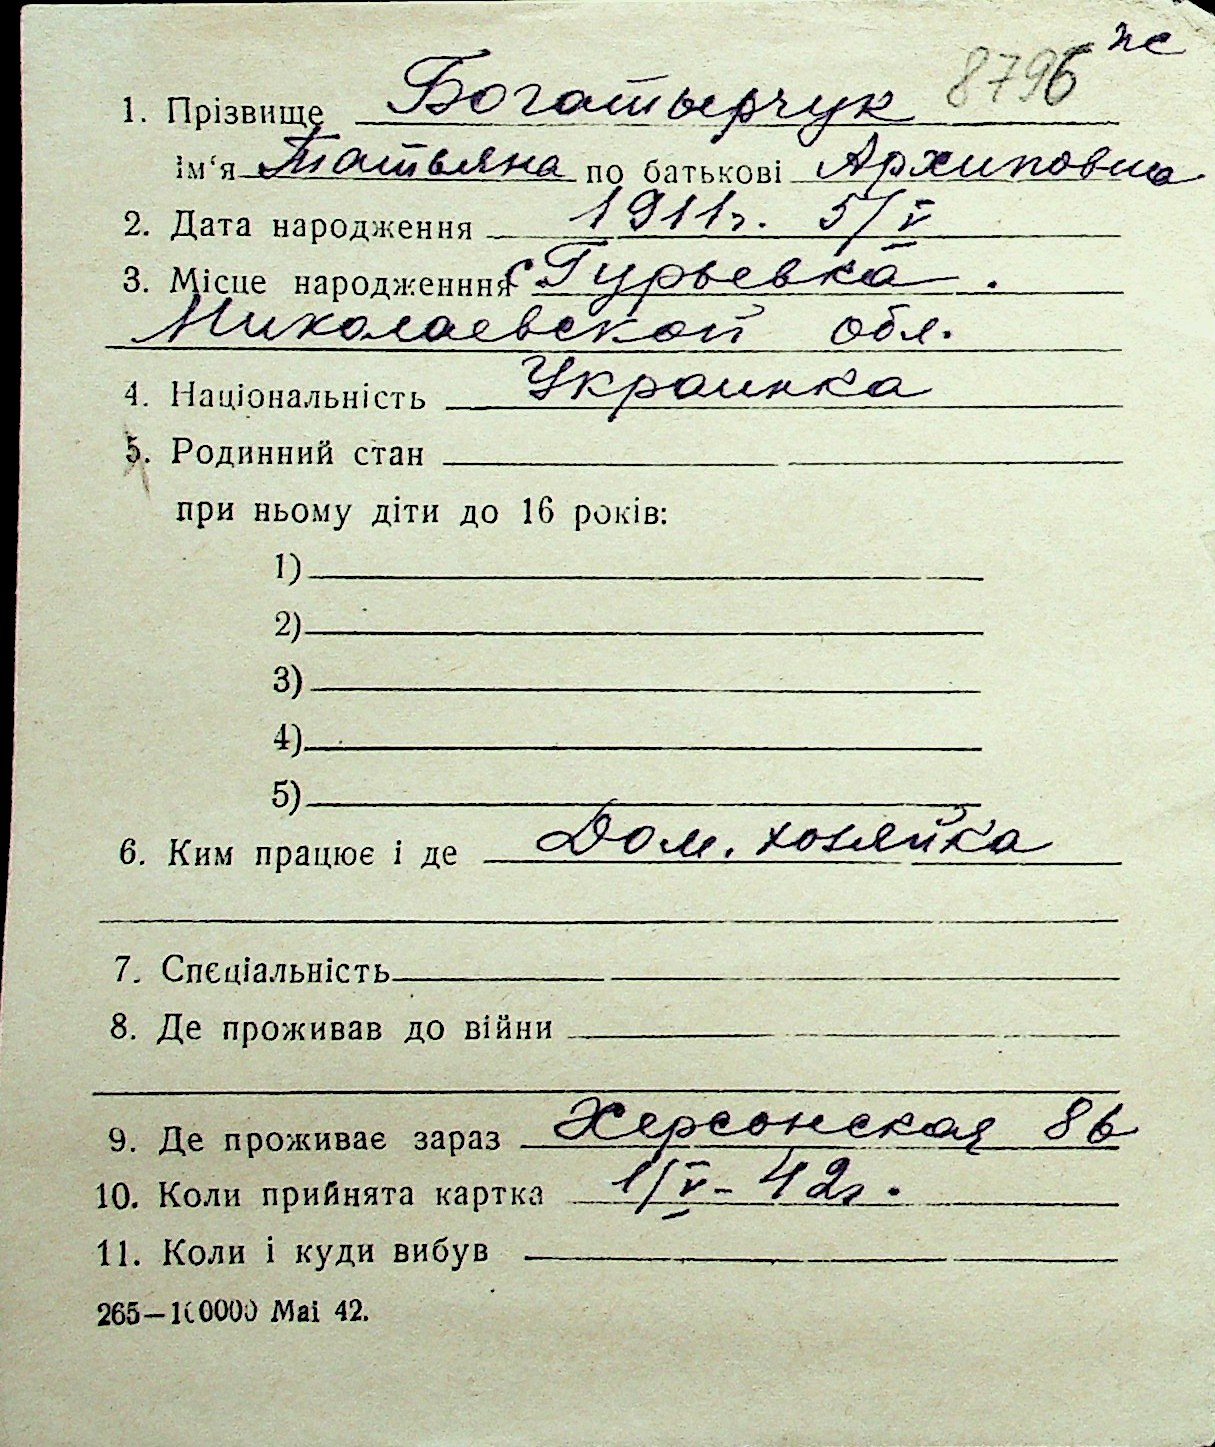 8796 пс
1. Прізвище Богатырчук
ім'я Татьяна по батькові Архиповна
2. Дата народження 1911г. 5/V
3. Місце народженння с Гурьевка.
Николаевской обл.
4. Національність Украинка
5. Родинний стан
при ньому діти до 16 років:
1)
2)
3)
4)
5)
6. Ким працює і де Дом. хозяйка
7. Спєціальність
8. Де проживав до війни
9. Де проживає зараз Херсонская 86
10. Коли прийнята картка 1/V-42г.
11. Коли і куди вибув
265—100000 Mai 42.